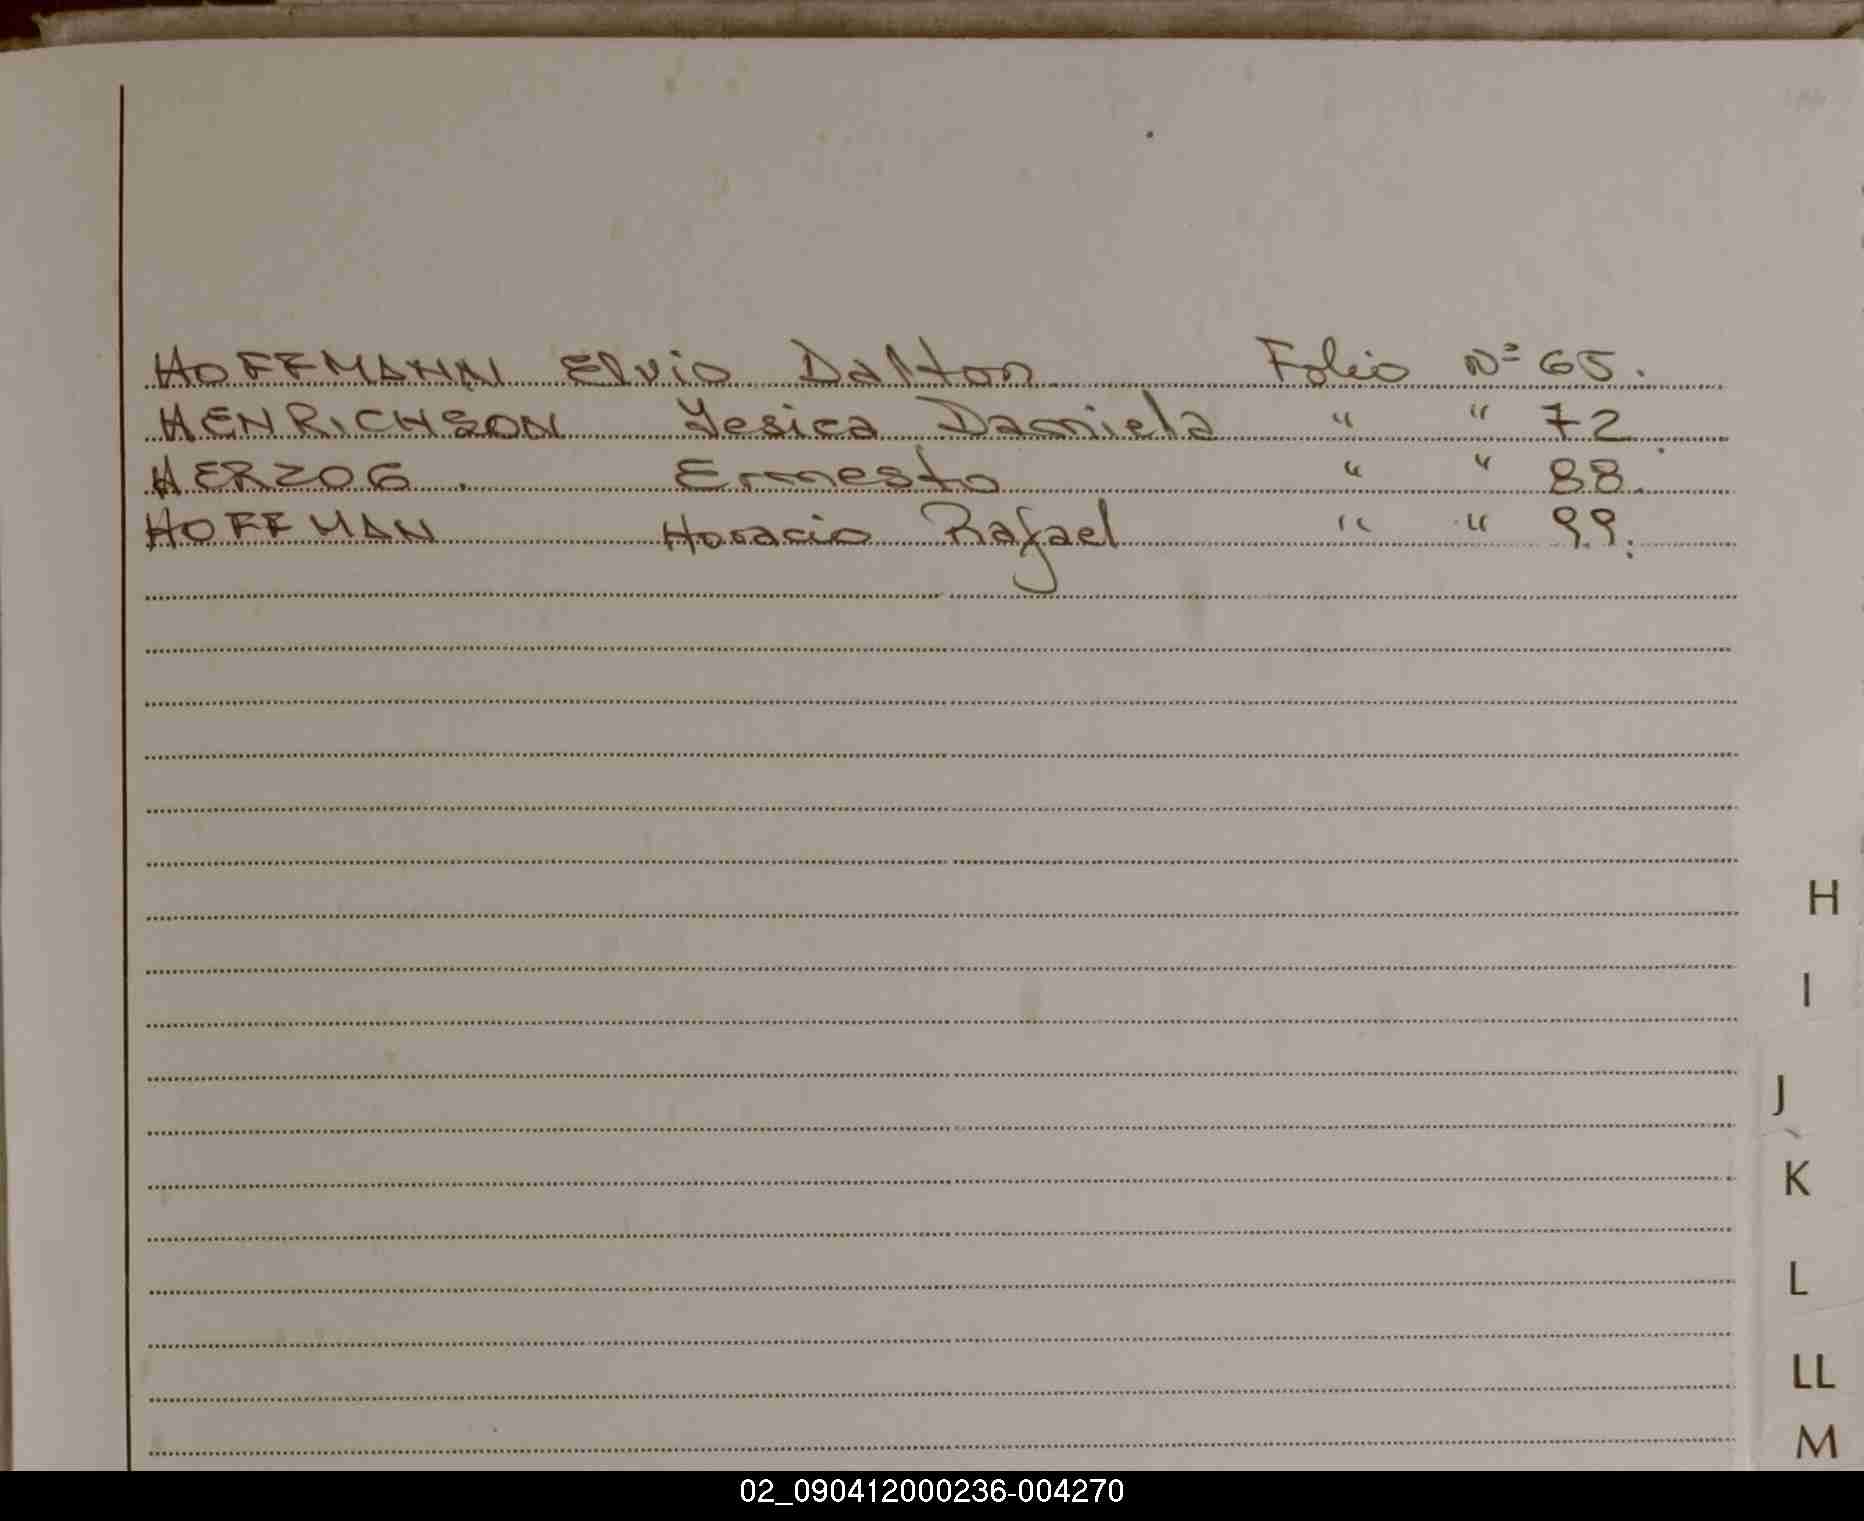 HOFFMANN Elvio Dalton Folio Nº 65.
HENRICHSON Yesica Daniela " " 72.
HERZOG . Ernesto " " 88.
HOFFMAN Horacio Rafael " " 99.
H
I
J
K
L
LL
M
02_090412000236-004270